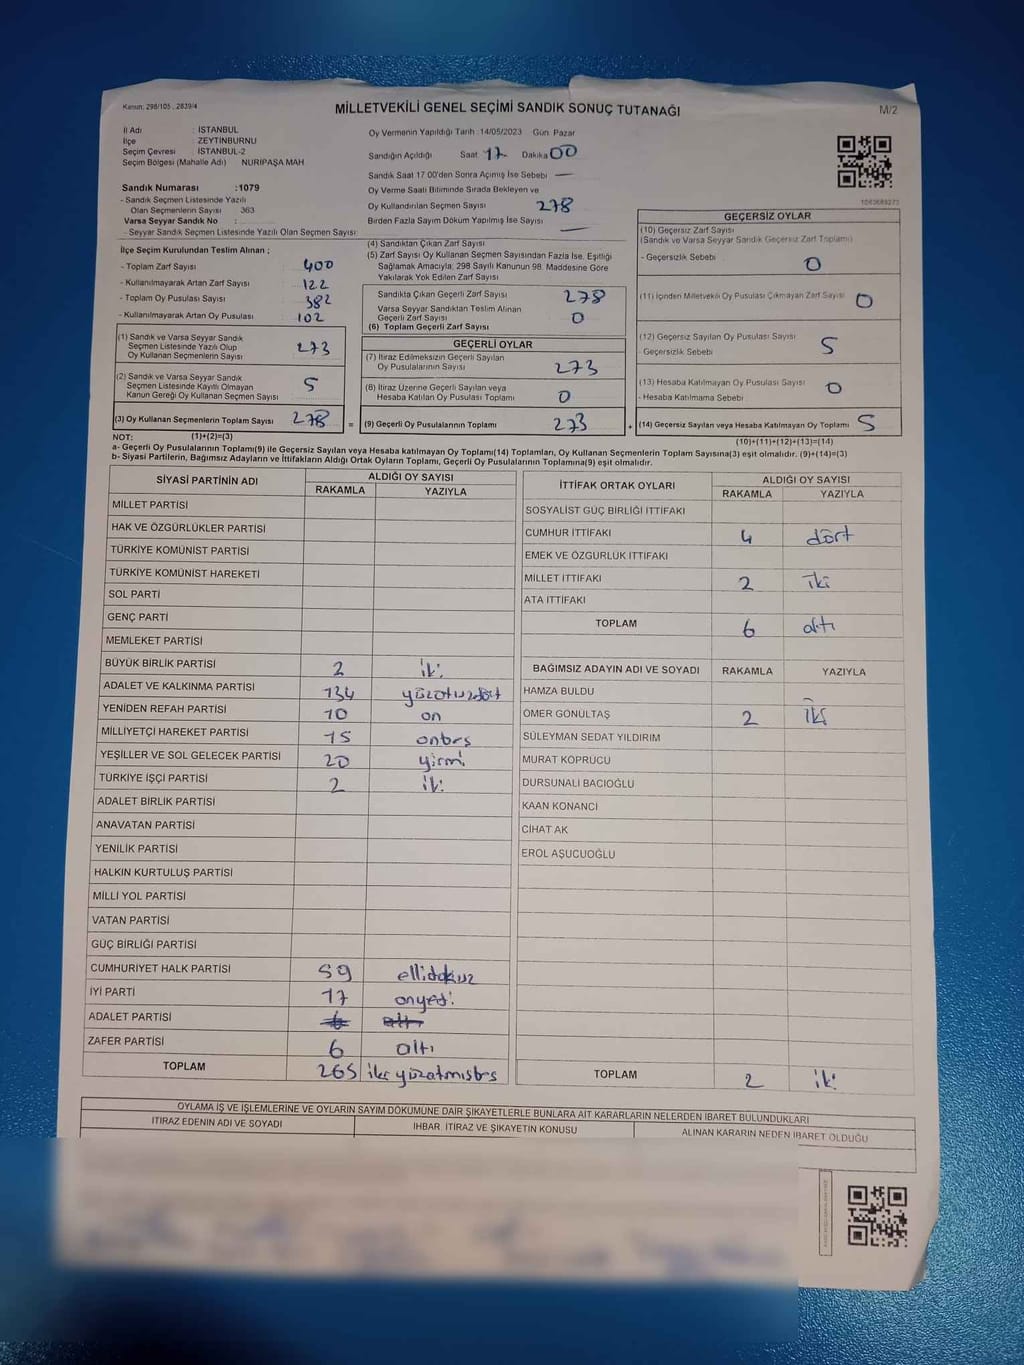 Kanun: 298/105 , 2839/4
MİLLETVEKİLİ GENEL SEÇİMİ SANDIK SONUÇ TUTANAĞI
M/2
İl Adı : İSTANBUL
İlçe : ZEYTİNBURNU
Seçim Çevresi : İSTANBUL-2
Seçim Bölgesi (Mahalle Adı) NURİPAŞA MAH
Oy Vermenin Yapıldığı Tarih :14/05/2023 Gün: Pazar
Sandığın Açıldığı Saat 17 Dakika 00
Sandık Saat 17:00'den Sonra Açılmış İse Sebebi —
Oy Verme Saati Bitiminde Sırada Bekleyen ve
Oy Kullandırılan Seçmen Sayısı 278
Birden Fazla Sayım Döküm Yapılmış İse Sayısı —
1063689273
Sandık Numarası :1079
- Sandık Seçmen Listesinde Yazılı
Olan Seçmenlerin Sayısı 363
Varsa Seyyar Sandık No :
- Seyyar Sandık Seçmen Listesinde Yazılı Olan Seçmen Sayısı:
İlçe Seçim Kurulundan Teslim Alınan ;
- Toplam Zarf Sayısı 400
- Kullanılmayarak Artan Zarf Sayısı 122
- Toplam Oy Pusulası Sayısı 382
- Kullanılmayarak Artan Oy Pusulası 102
(1) Sandık ve Varsa Seyyar Sandık
Seçmen Listesinde Yazılı Olup
Oy Kullanan Seçmenlerin Sayısı 273
(2) Sandık ve Varsa Seyyar Sandık
Seçmen Listesinde Kayıtlı Olmayan
Kanun Gereği Oy Kullanan Seçmen Sayısı 5
(3) Oy Kullanan Seçmenlerin Toplam Sayısı 278
(4) Sandıktan Çıkan Zarf Sayısı
(5) Zarf Sayısı Oy Kullanan Seçmen Sayısından Fazla İse, Eşitliği
Sağlamak Amacıyla; 298 Sayılı Kanunun 98. Maddesine Göre
Yakılarak Yok Edilen Zarf Sayısı
Sandıkta Çıkan Geçerli Zarf Sayısı 278
Varsa Seyyar Sandıktan Teslim Alınan
Geçerli Zarf Sayısı 0
(6) Toplam Geçerli Zarf Sayısı
GEÇERLİ OYLAR
(7) İtiraz Edilmeksizin Geçerli Sayılan
Oy Pusulalarının Sayısı 273
(8) İtiraz Üzerine Geçerli Sayılan veya
Hesaba Katılan Oy Pusulası Toplamı 0
= (9) Geçerli Oy Pusulalarının Toplamı 273
GEÇERSİZ OYLAR
(10) Geçersiz Zarf Sayısı
(Sandık ve Varsa Seyyar Sandık Geçersiz Zarf Toplamı)
- Geçersizlik Sebebi 0
(11) İçinden Milletvekili Oy Pusulası Çıkmayan Zarf Sayısı 0
(12) Geçersiz Sayılan Oy Pusulası Sayısı
- Geçersizlik Sebebi 5
(13) Hesaba Katılmayan Oy Pusulası Sayısı
- Hesaba Katılmama Sebebi 0
+ (14) Geçersiz Sayılan veya Hesaba Katılmayan Oy Toplamı 5
NOT: (1)+(2)=(3)
(10)+(11)+(12)+(13)=(14)
a- Geçerli Oy Pusulalarının Toplamı(9) ile Geçersiz Sayılan veya Hesaba katılmayan Oy Toplamı(14) Toplamları, Oy Kullanan Seçmenlerin Toplam Sayısına(3) eşit olmalıdır. (9)+(14)=(3)
b- Siyasi Partilerin, Bağımsız Adayların ve İttifakların Aldığı Ortak Oyların Toplamı, Geçerli Oy Pusulalarının Toplamına(9) eşit olmalıdır.
SİYASİ PARTİNİN ADI ALDIĞI OY SAYISI
RAKAMLA YAZIYLA
MİLLET PARTİSİ
HAK VE ÖZGÜRLÜKLER PARTİSİ
TÜRKİYE KOMÜNİST PARTİSİ
TÜRKİYE KOMÜNİST HAREKETİ
SOL PARTİ
GENÇ PARTİ
MEMLEKET PARTİSİ
BÜYÜK BİRLİK PARTİSİ 2 iki
ADALET VE KALKINMA PARTİSİ 134 yüzotuzdört
YENİDEN REFAH PARTİSİ 10 on
MİLLİYETÇİ HAREKET PARTİSİ 15 onbeş
YEŞİLLER VE SOL GELECEK PARTİSİ 20 yirmi
TÜRKİYE İŞÇİ PARTİSİ 2 iki
ADALET BİRLİK PARTİSİ
ANAVATAN PARTİSİ
YENİLİK PARTİSİ
HALKIN KURTULUŞ PARTİSİ
MİLLİ YOL PARTİSİ
VATAN PARTİSİ
GÜÇ BİRLİĞİ PARTİSİ
CUMHURİYET HALK PARTİSİ 59 ellidokuz
İYİ PARTİ 17 onyedi
ADALET PARTİSİ 6 altı
ZAFER PARTİSİ 6 altı
TOPLAM 265 ikiyüzatmışbeş
İTTİFAK ORTAK OYLARI ALDIĞI OY SAYISI
RAKAMLA YAZIYLA
SOSYALİST GÜÇ BİRLİĞİ İTTİFAKI
CUMHUR İTTİFAKI 4 dört
EMEK VE ÖZGÜRLÜK İTTİFAKI
MİLLET İTTİFAKI 2 iki
ATA İTTİFAKI
TOPLAM 6 altı
BAĞIMSIZ ADAYIN ADI VE SOYADI RAKAMLA YAZIYLA
HAMZA BULDU
ÖMER GÖNÜLTAŞ 2 iki
SÜLEYMAN SEDAT YILDIRIM
MURAT KÖPRÜCÜ
DURSUNALİ BACIOĞLU
KAAN KONANCİ
CİHAT AK
EROL AŞUCUOĞLU
TOPLAM 2 iki
OYLAMA İŞ VE İŞLEMLERİNE VE OYLARIN SAYIM DÖKÜMÜNE DAİR ŞİKAYETLERLE BUNLARA AİT KARARLARIN NELERDEN İBARET BULUNDUKLARI
İTİRAZ EDENİN ADI VE SOYADI İHBAR İTİRAZ VE ŞİKAYETİN KONUSU ALINAN KARARIN NEDEN İBARET OLDUĞU